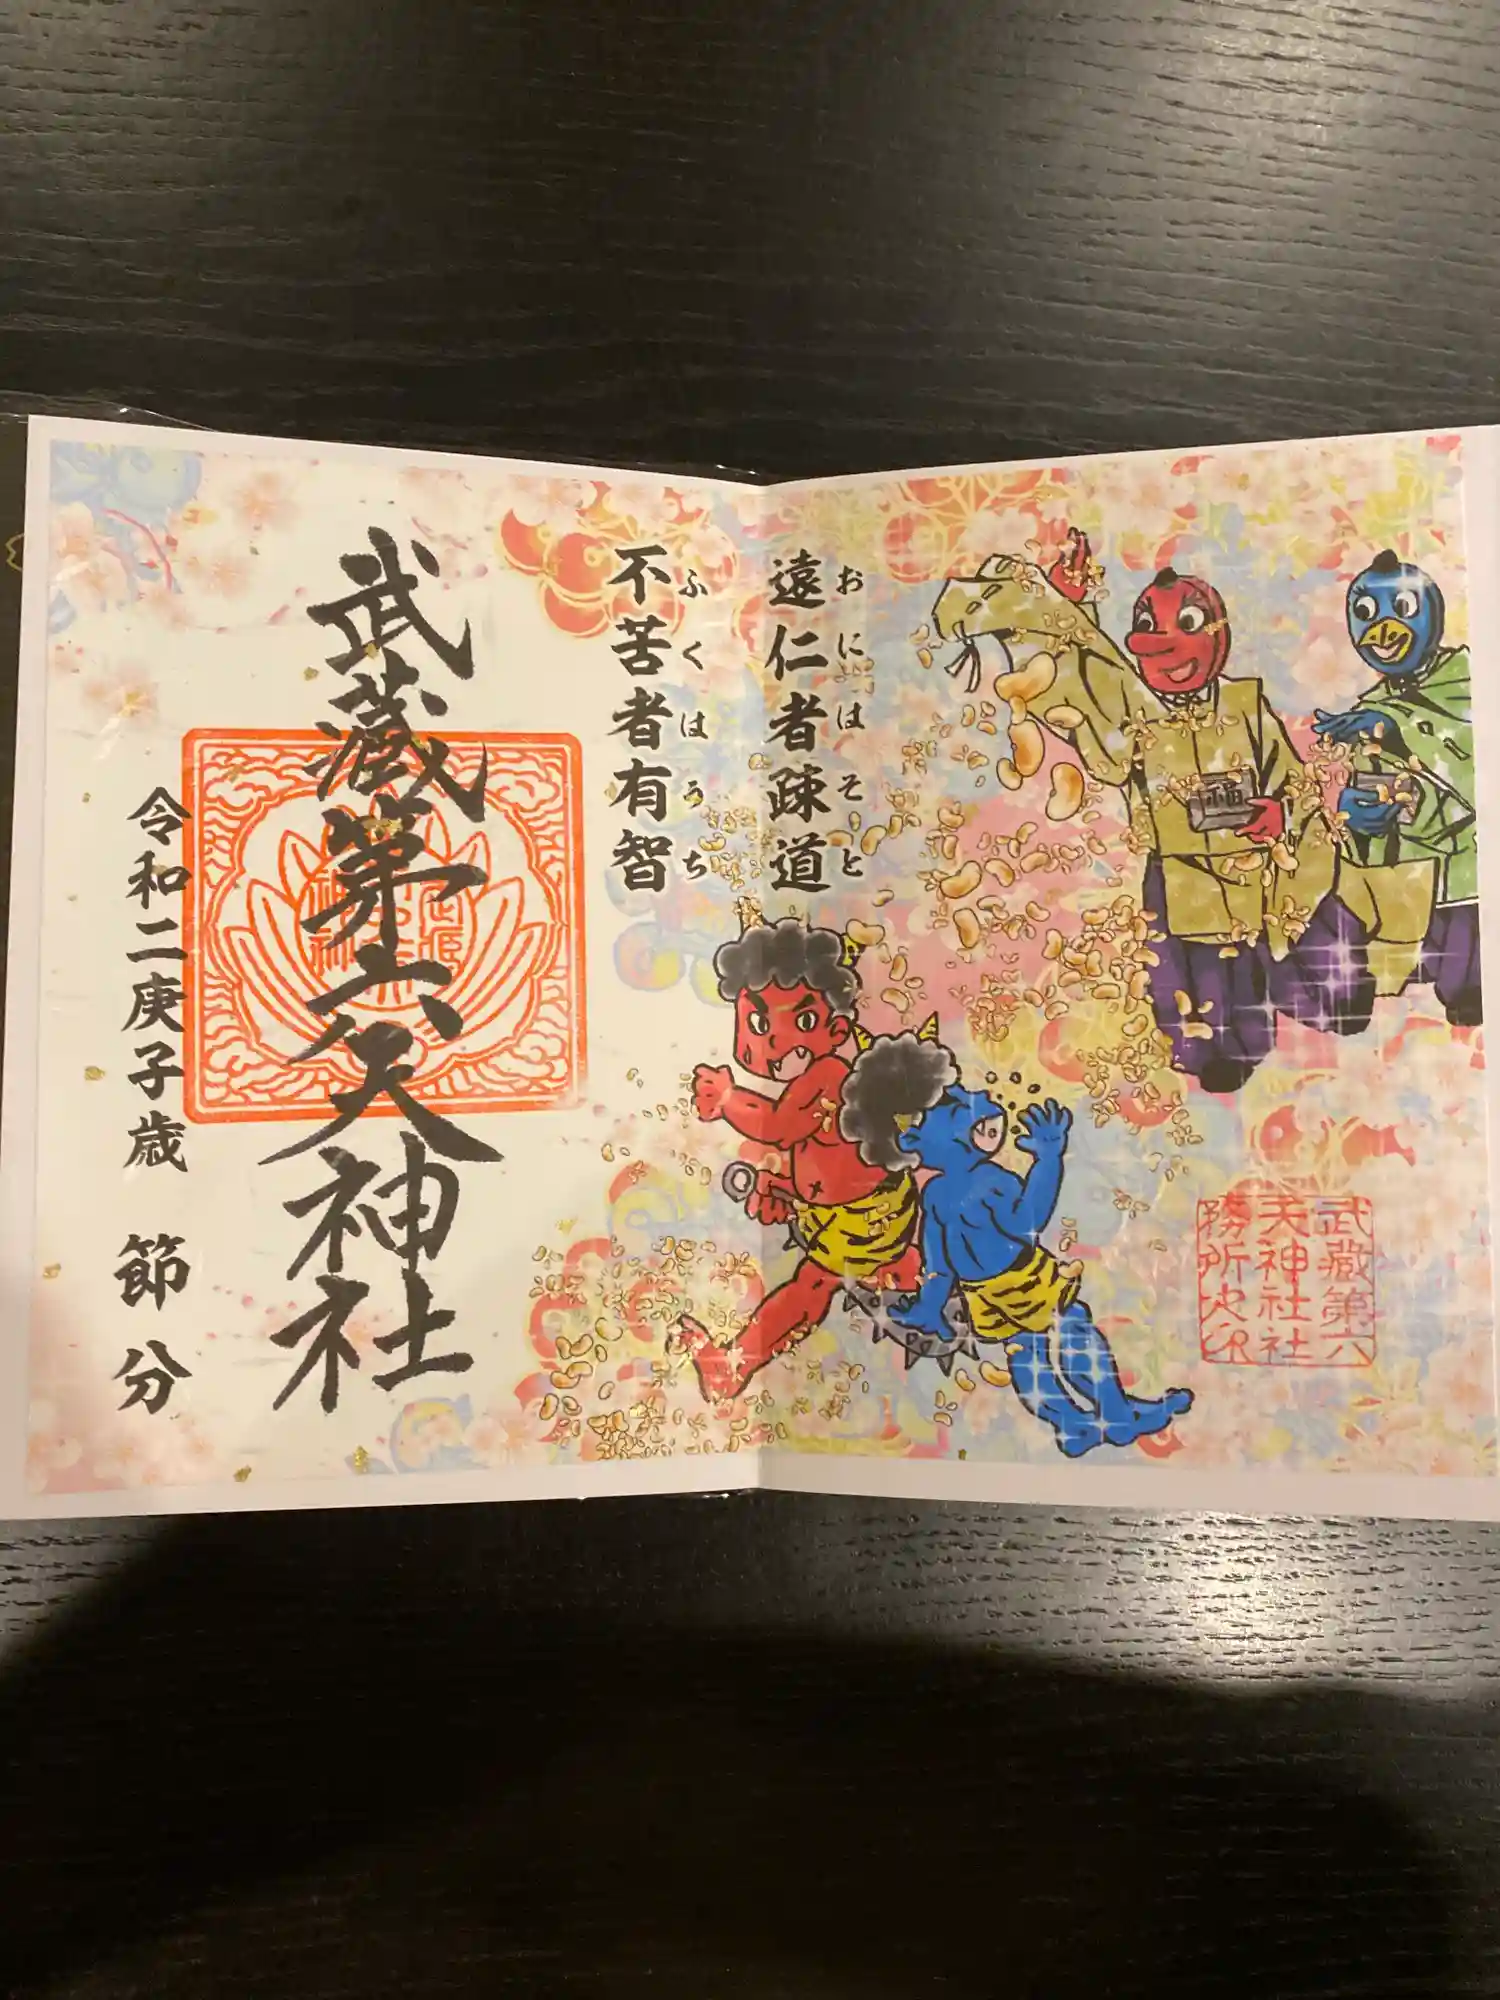 遠仁者疎道
おにはそと
不苦者有智
ふくはうち
武蔵第六天神社
令和二庚子歳 節分
福
武蔵第六
天神社社
務所之印